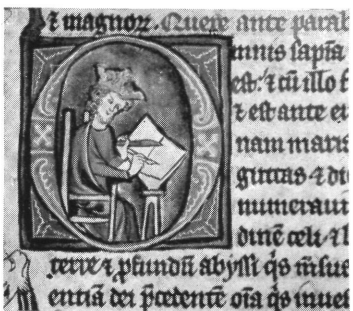 et magnoꝝ. Quere ante parab
mnis sapīa
est: ⁊ cū illo f
⁊ est ante eu
nam maris
guttas ⁊ die
numeraui
dinē celi ⁊ l
terre ⁊ ꝓfundū abyssi q̇s mēsus
entiā dei p̄cedentē oīa q̇s inues